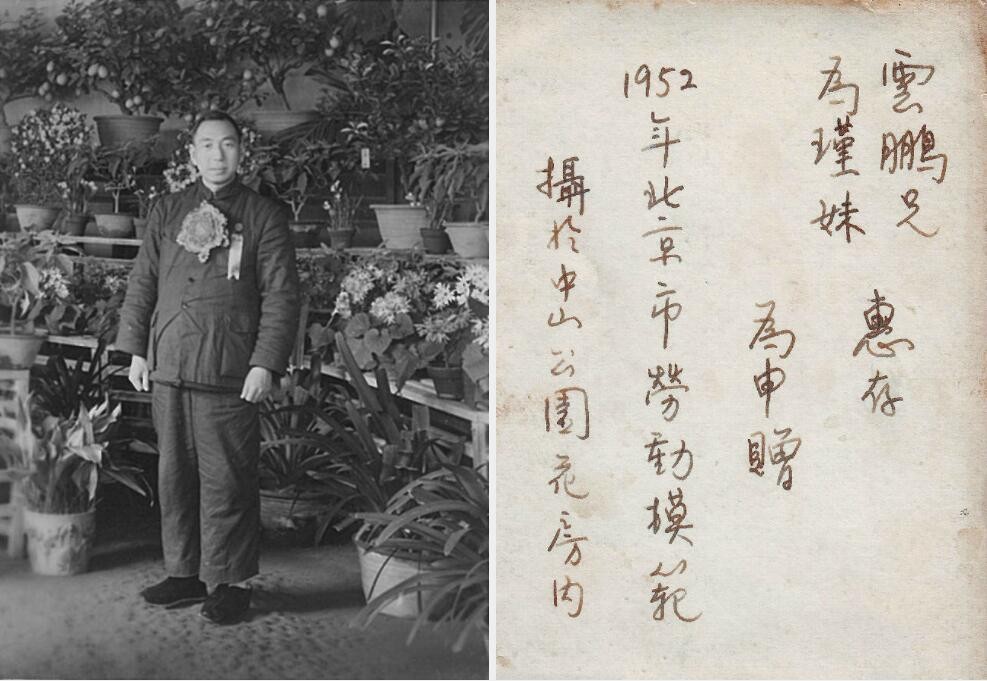 雲鵬兄
為瑾妹
惠存
為申贈
1952年北京市勞動模範
攝於中山公園花房内